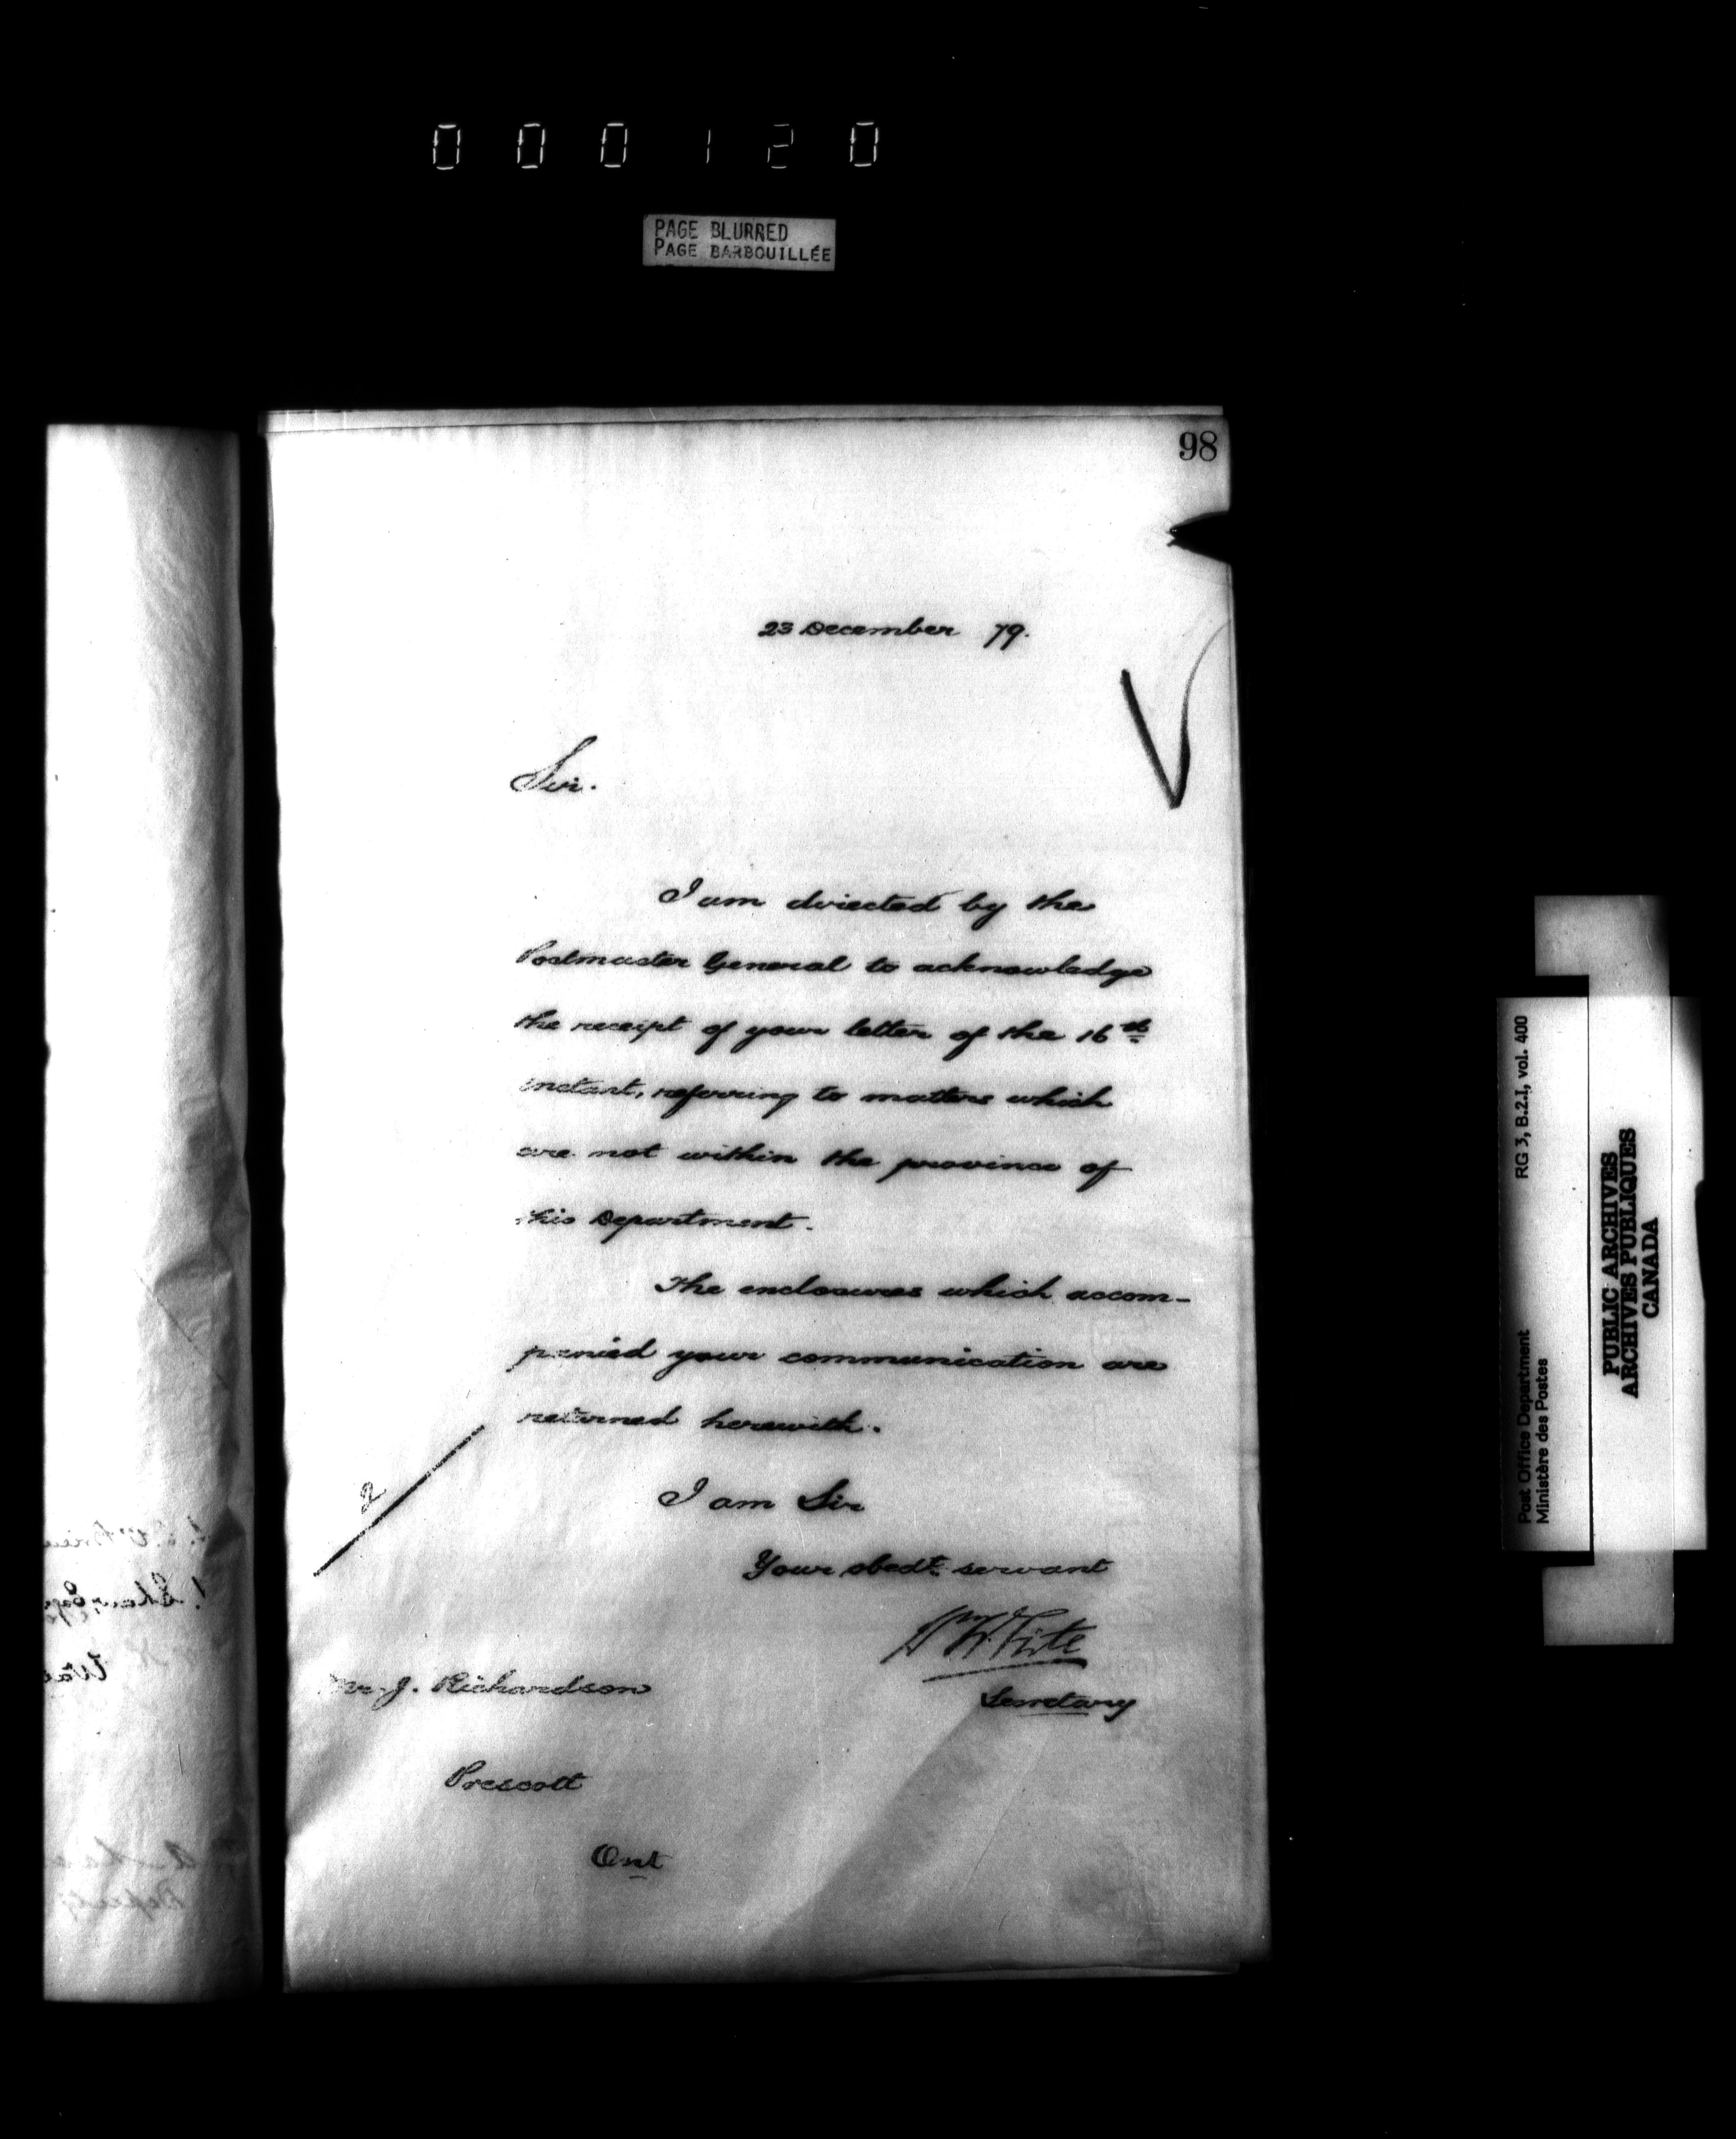 0 0 0 1 2 0
PAGE BLURRED
PAGE BARBOUILLÉE
98
23 December 79.
Sir.
I am directed by the
Postmaster General to acknowledge
the receipt of your letter of the 16th
instant, referring to matters which
are not within the province of
this Department.
The enclosures which accom-
panied your communication are
returned herewith.
2
I am Sir
Your obedt. servant
Wm White
Secretary
Mr J. Richardson
Prescott
Ont
RG 3, B.2.I, vol. 400
Post Office Department
Ministère des Postes
PUBLIC ARCHIVES
ARCHIVES PUBLIQUES
CANADA